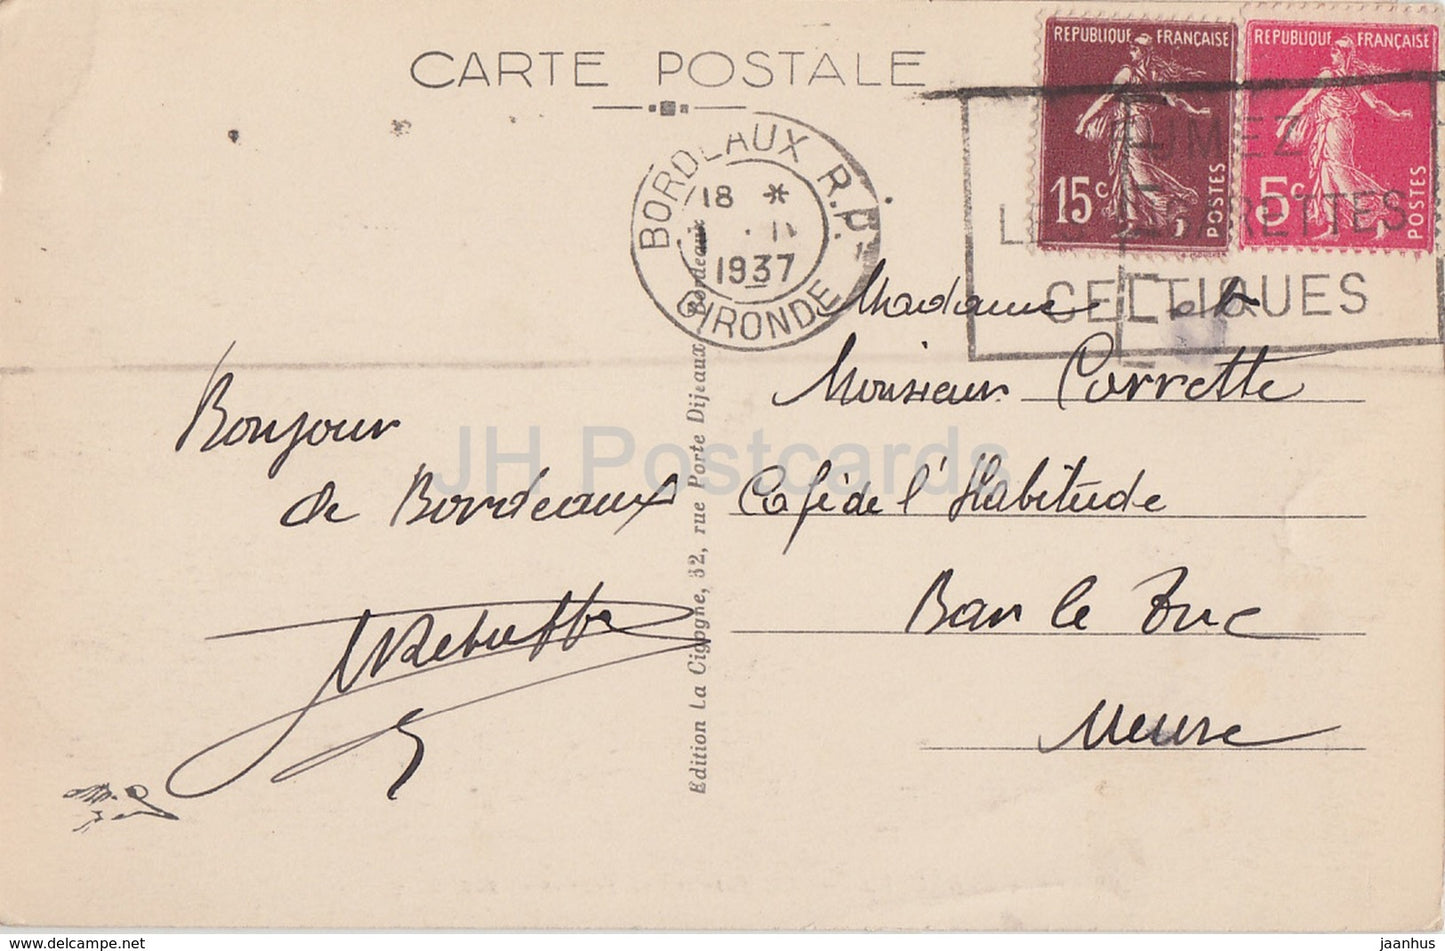 CARTE POSTALE
REPUBLIQUE FRANÇAISE
15c POSTES
REPUBLIQUE FRANÇAISE
5c POSTES
BORDEAUX R.P.
18 *
1937
GIRONDE
FUMEZ
LES CIGARETTES
CELTIQUES
Bonjour
de Bordeaux
Edition La Cigogne, 32, rue Porte Dijeaux Bordeaux
Madame et
Monsieur Corrette
Café de l'Habitude
Bar le Duc
Meuse
JH Postcards
delcampe.net
jaanhus